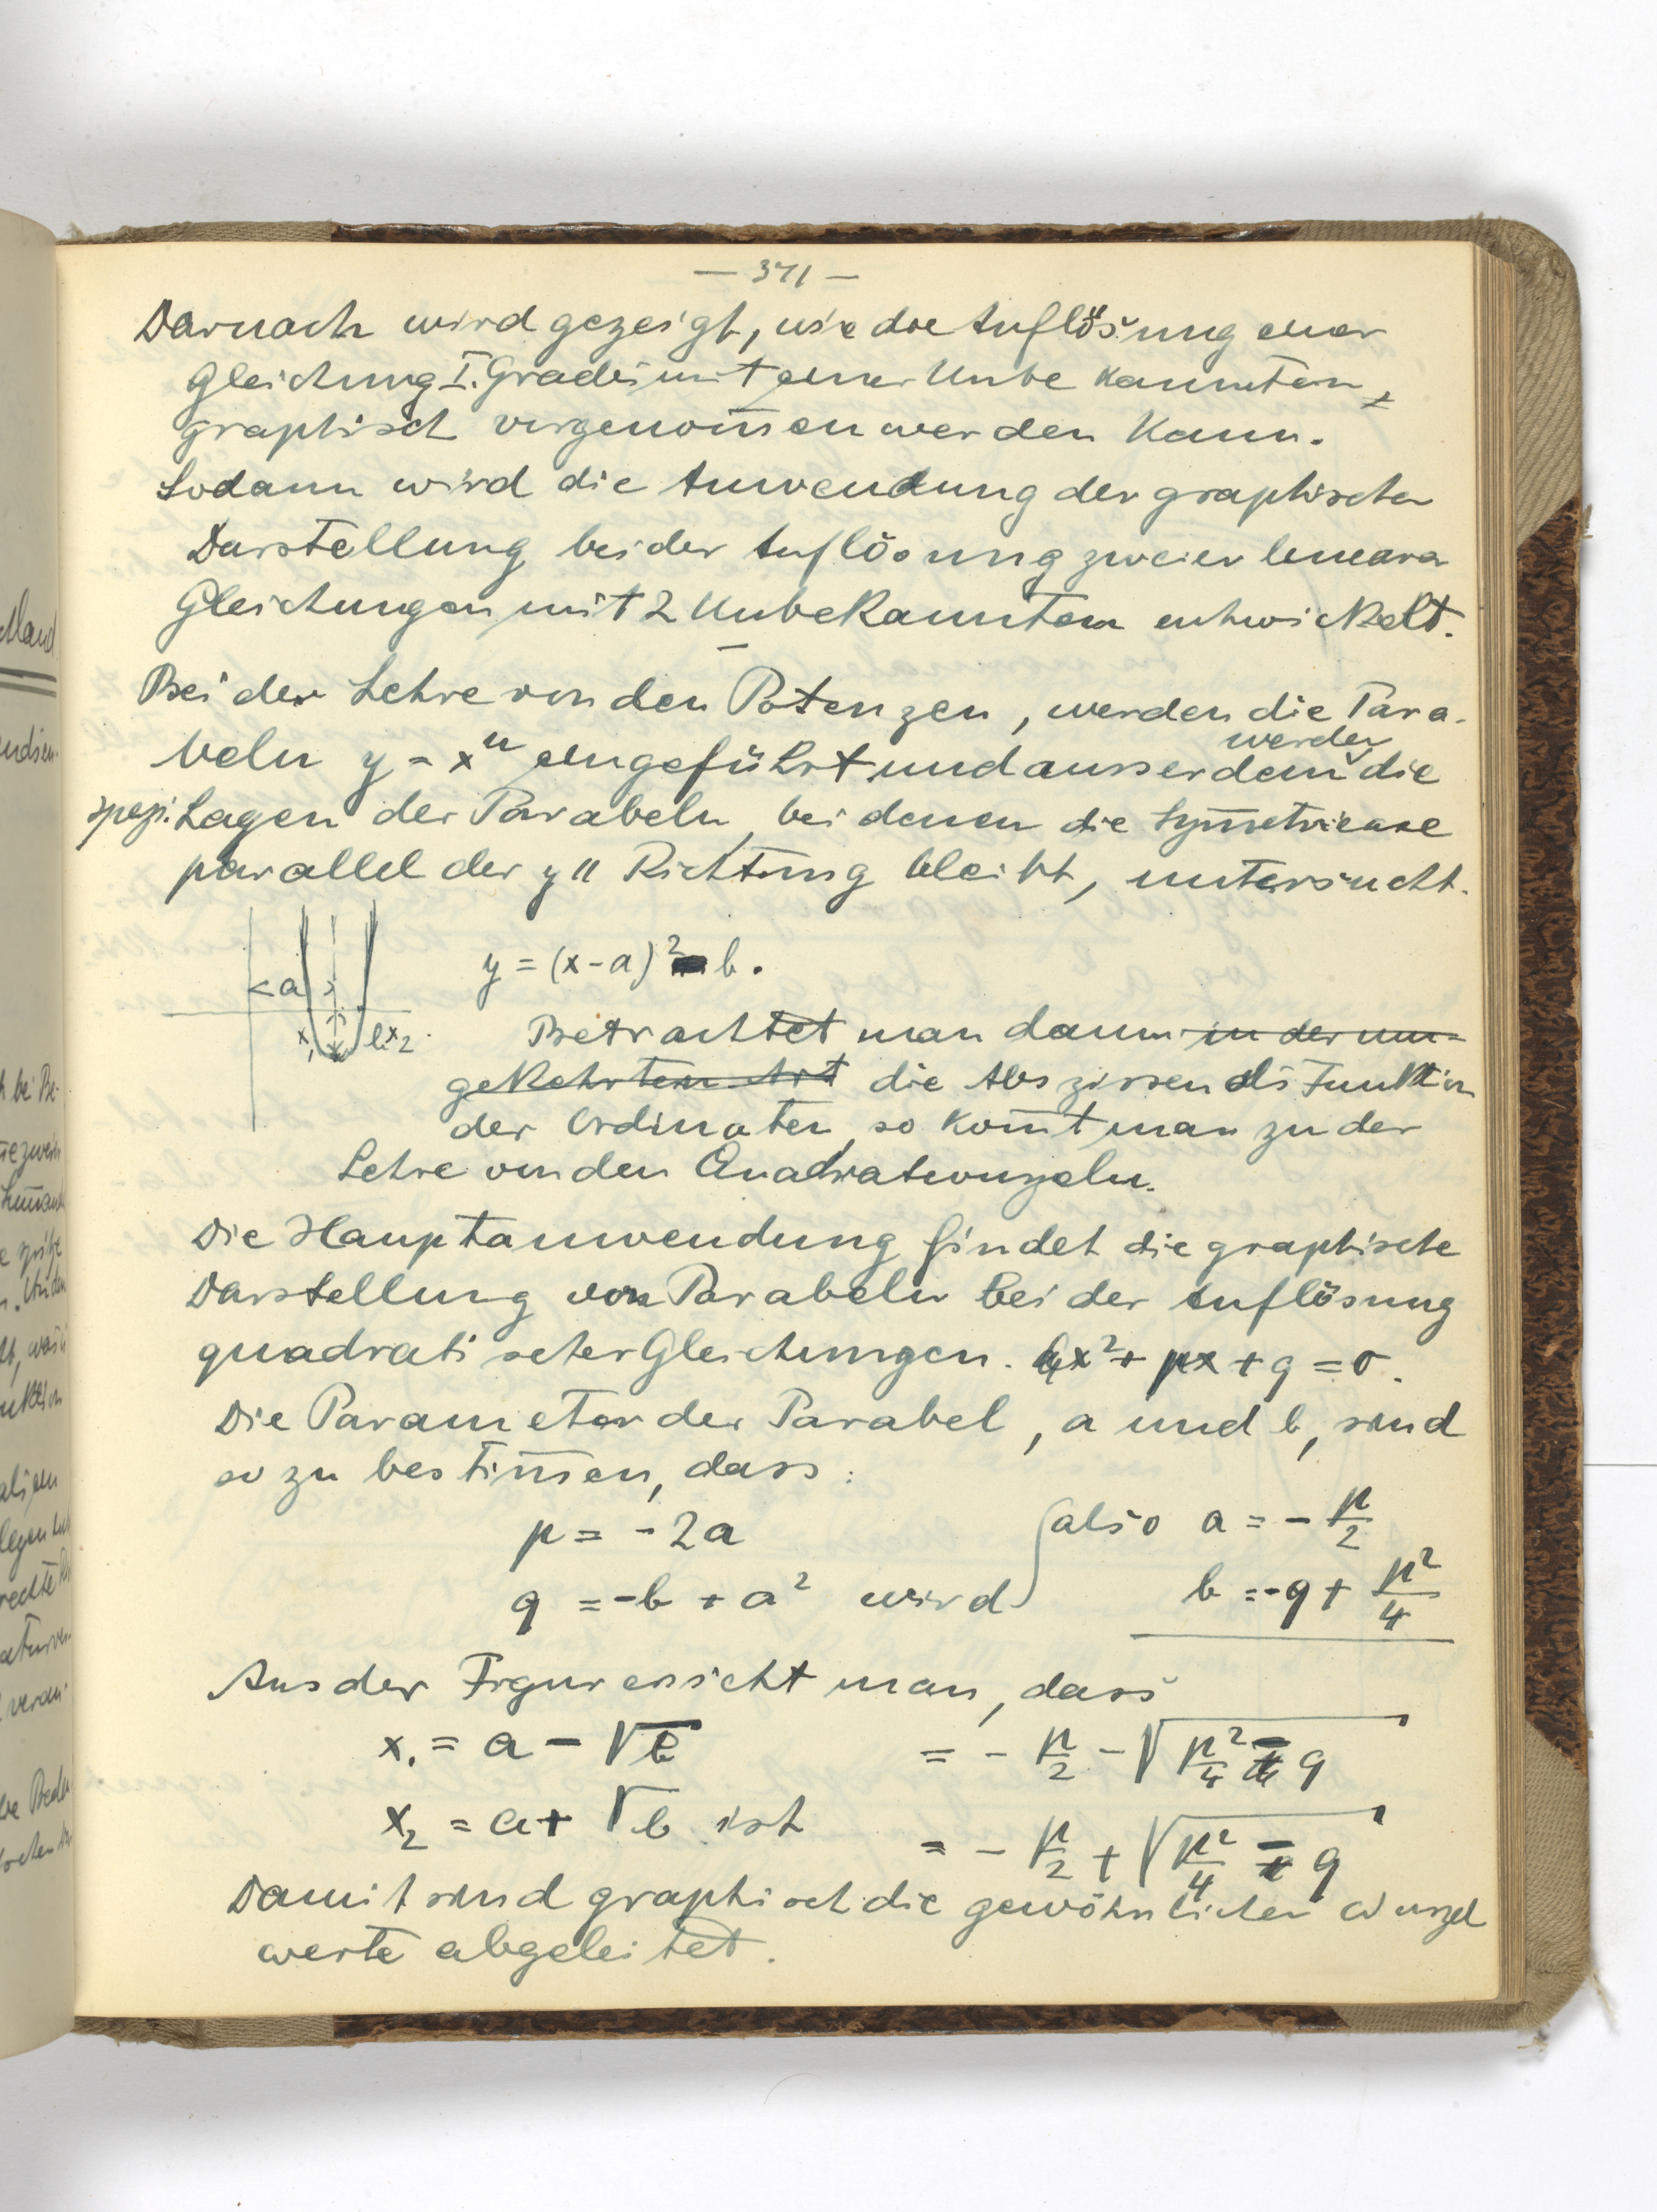 — 371 —
Darnach wird gezeigt, wie die Auflösung einer
Gleichung I. Grades mit einer Unbekannten,
graphisch vorgenom̅en werden kann.
Sodann wird die Anwendung der graphischen
Darstellung bei der Auflösung zweier linearer
Gleichungen mit 2 Unbekannten entwickelt.
Bei der Lehre von den Potenzen, werden die Para-
beln y = xⁿ eingeführt und ausserdem werden die
spezi. Lagen der Parabeln, bei denen die Sym̅etrieaxe
parallel der y" Richtung bleibt, untersucht.
y = (x - a)² - b.
a
x₁ b x₂
Betrachtet man dann in der um-
gekehrten Art die Abszissen als Funktion
der Ordinaten, so kom̅t man zu der
Lehre von den Quadratwurzeln.
Die Hauptanwendung findet die graphische
Darstellung von Parabeln bei der Auflösung
quadratischer Gleichungen. x² + px + q = 0.
Die Parameter der Parabel, a und b, sind
so zu bestim̅en, dass:
p = - 2a also a = - p/2
q = - b + a² wird b = - q + p²/4
Aus der Figur ersieht man, dass
x₁ = a - √b = - p/2 - √(p²/4 - q)
x₂ = a + √b ist = - p/2 + √(p²/4 - q)
Damit sind graphisch die gewöhnlichen Wurzel
werte abgeleitet.